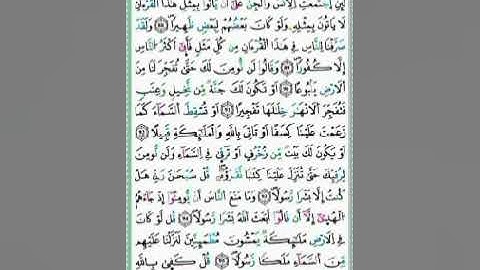 لَّئِنِ اِجْتَمَعَتِ اِلِانسُ وَالْجِنُّ عَلَىٰ أَنْ يَّاتُوا بِمِثْلِ هَٰذَا اَلْقُرْءَانِ
لَا يَاتُونَ بِمِثْلِهِ وَلَوْ كَانَ بَعْضُهُمْ لِبَعْضٍ ظَهِيرًا وَلَقَدْ
صَرَّفْنَا لِلنَّاسِ فِي هَٰذَا اَلْقُرْءَانِ مِن كُلِّ مَثَلٍ فَأَبَىٰ أَكْثَرُ اُلنَّاسِ
إِلَّا كُفُورًا وَقَالُوا لَن نُّومِنَ لَكَ حَتَّىٰ تُفَجِّرَ لَنَا مِنَ
اَلَارْضِ يَنۢبُوعًا أَوْ تَكُونَ لَكَ جَنَّةٌ مِّن نَّخِيلٍ وَعِنَبٍ
فَتُفَجِّرَ اَلَانْهَٰرَ خِلَٰلَهَا تَفْجِيرًا أَوْ تُسْقِطَ اَلسَّمَاءَ كَمَا
زَعَمْتَ عَلَيْنَا كِسَفًا أَوْ تَاتِيَ بِاللَّهِ وَالْمَلَٰئِكَةِ قَبِيلًا
أَوْ يَكُونَ لَكَ بَيْتٌ مِّن زُخْرُفٍ أَوْ تَرْقَىٰ فِي اِلسَّمَاءِ وَلَن نُّومِنَ
لِرُقِيِّكَ حَتَّىٰ تُنَزِّلَ عَلَيْنَا كِتَٰبًا نَّقْرَؤُهُ قُلْ سُبْحَٰنَ رَبِّي هَلْ
كُنتُ إِلَّا بَشَرًا رَّسُولًا وَمَا مَنَعَ اَلنَّاسَ أَنْ يُّومِنُوا إِذْ جَاءَهُمُ
اُلْهُدَىٰ إِلَّا أَن قَالُوا أَبَعَثَ اَللَّهُ بَشَرًا رَّسُولًا قُل لَّوْ كَانَ
فِي اِلَارْضِ مَلَٰئِكَةٌ يَمْشُونَ مُطْمَئِنِّينَ لَنَزَّلْنَا عَلَيْهِم
مِّنَ اَلسَّمَاءِ مَلَكًا رَّسُولًا قُلْ كَفَىٰ بِاللَّهِ